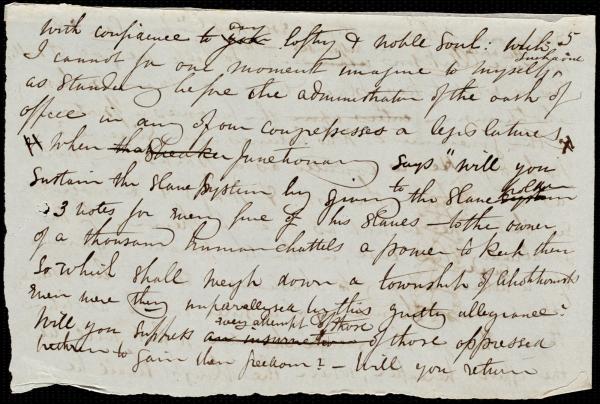 5
With confidence to any you lofty & noble Soul: which
I cannot for one moment imagine to myself, such a one
as standing before the administrator of the oath of
office in any of our Congresses or legislatures.
When the Speaker functionary says "Will you
sustain the Slave System by giving to the Slave holder System
3 votes for every five of his slaves – to the owner
of a thousand human chattels a power to keep them
So which shall weigh down a township of
even were they unparallysed by this guilty allegiance?
Will you suppress every attempt of those an insurrection of those oppressed
to gain their freedom? – Will you return